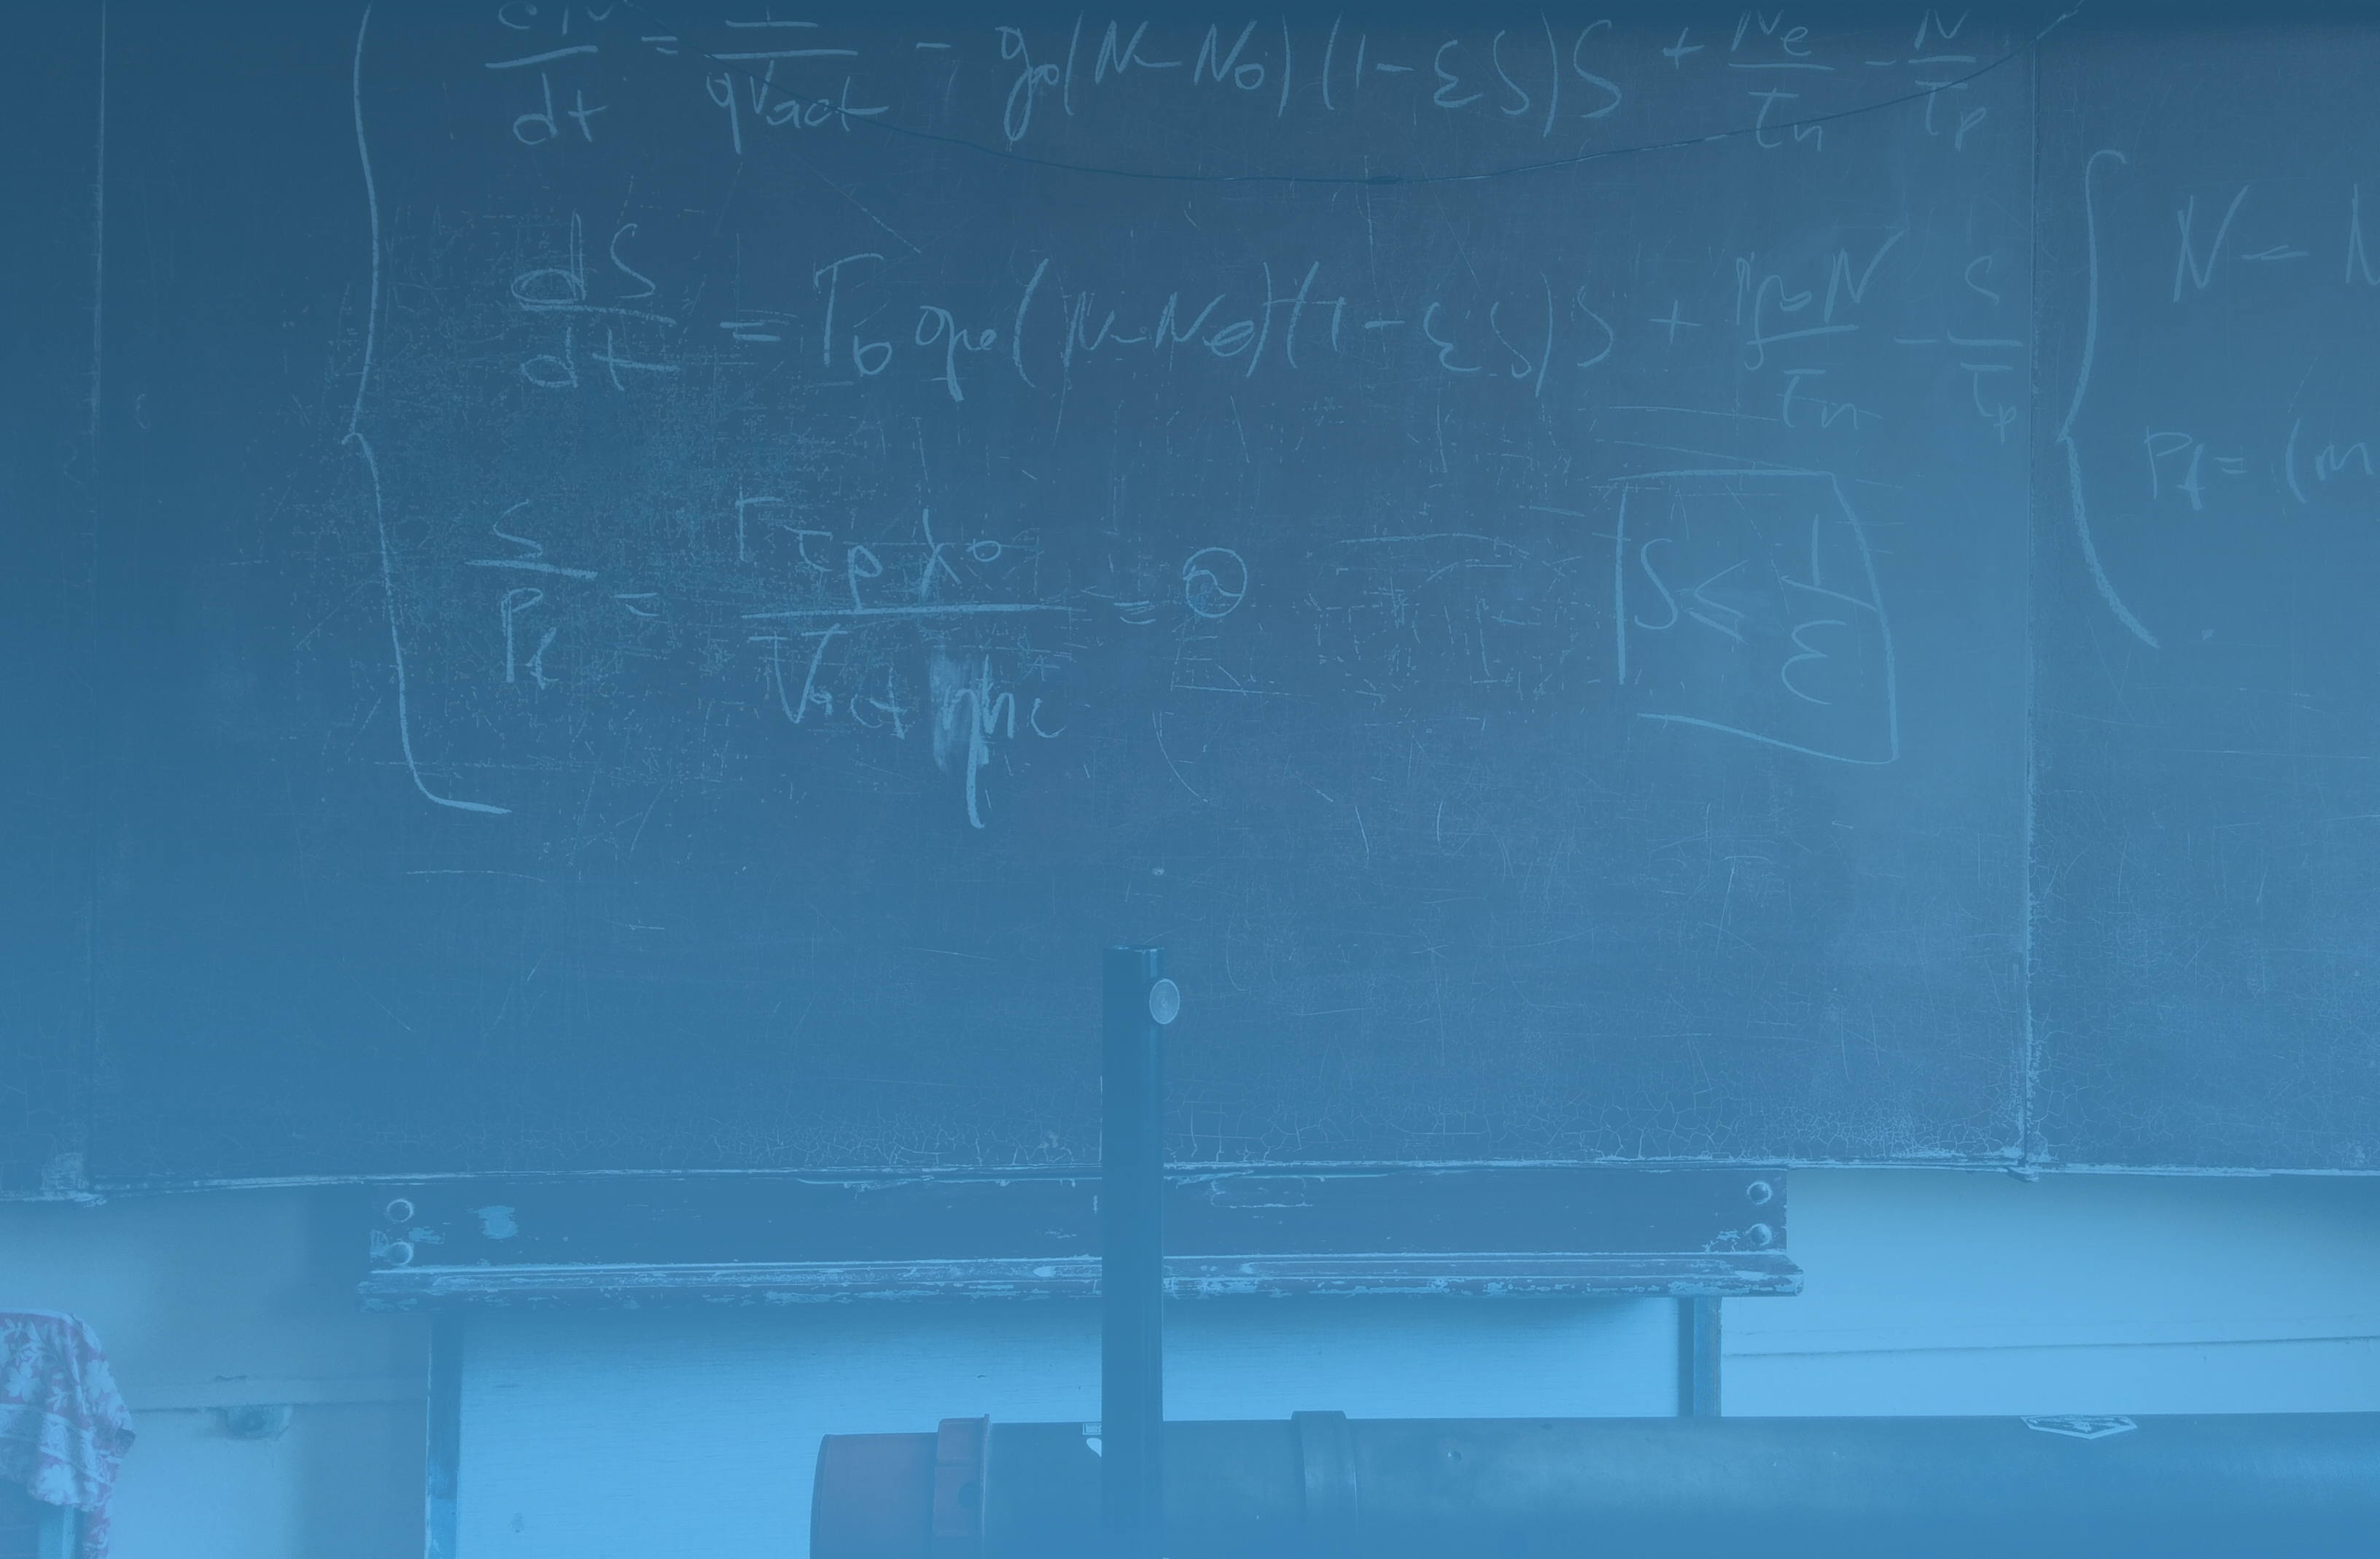 dN/dt = I/(qVact) - g0(N-N0)(1-εS)S + Ne/τn - N/τp
dS/dt = Γ0 g0(N-N0)(1-εS)S + ΓβN/τn - S/τp
S/Pf = Γτpλ0/(Vact ηhc) = ϑ
S ≤ 1/ε
N -
Pf = (m